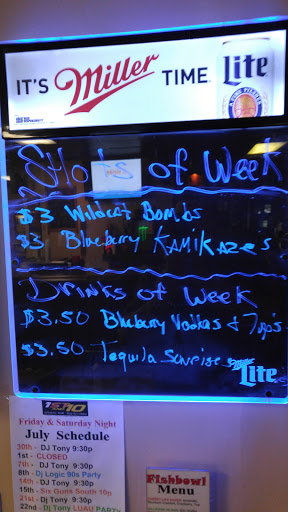 IT'S Miller TIME Lite
Shots of Week
$3 Wildcat Bombs
$3 Blueberry KAMIKAZES
Drinks of Week
$3.50 Blueberry Vodkas & 7up's
$3.50 Tequila Sunrise
Miller Lite
Friday & Saturday Night
July Schedule
30th - DJ Tony 9:30p
1st - CLOSED
7th - Dj Tony 9:30p
8th - Dj Logic 90s Party
14th - DJ Tony 9:30p
15th - Six Guns South 10p
21st - Dj Tony 9:30p
22nd - Dj Tony LUAU PARTY
Fishbowl
Menu